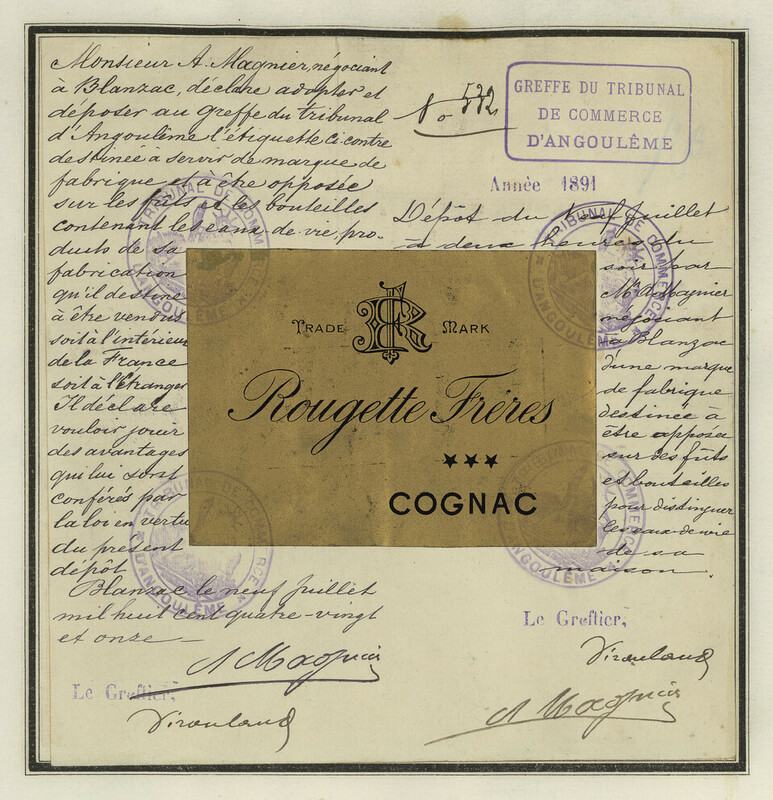 Monsieur A. Magnier, négociant
à Blanzac, déclare adopter et
déposer au Greffe du tribunal
d'Angoulême l'étiquette ci-contre
destinée à servir de marque de
fabrique et à être opposée
sur les fûts et les bouteilles
contenant les eaux-de-vie, pro-
duits de sa
fabrication
qu'il destine
à être vendus
soit à l'intérieur
de la France
soit à l'étranger
Il déclare
vouloir jouir
des avantages
qui lui sont
conférés par
la loi en vertu
du présent
dépôt
Blanzac le neuf Juillet
mil huit cent quatre-vingt
et onze
A Magnier
Le Greffier,
No 532
GREFFE DU TRIBUNAL
DE COMMERCE
D'ANGOULÊME
Année 1891
Dépôt du neuf Juillet
à deux heures du
soir par
Mr A. Magnier
négociant
à Blanzac
d'une marque
de fabrique
destinée à
être apposée
sur des fûts
et bouteilles
pour distinguer
les eaux-de-vie
de sa
maison.
Le Greffier,
A Magnier
TRADE MARK
Rougette Fréres
★★★
COGNAC
TRIBUNAL DE COMMERCE
D'ANGOULÊME
TRIBUNAL DE COMMERCE
D'ANGOULÊME
TRIBUNAL DE COMMERCE
D'ANGOULÊME
TRIBUNAL DE COMMERCE
D'ANGOULÊME